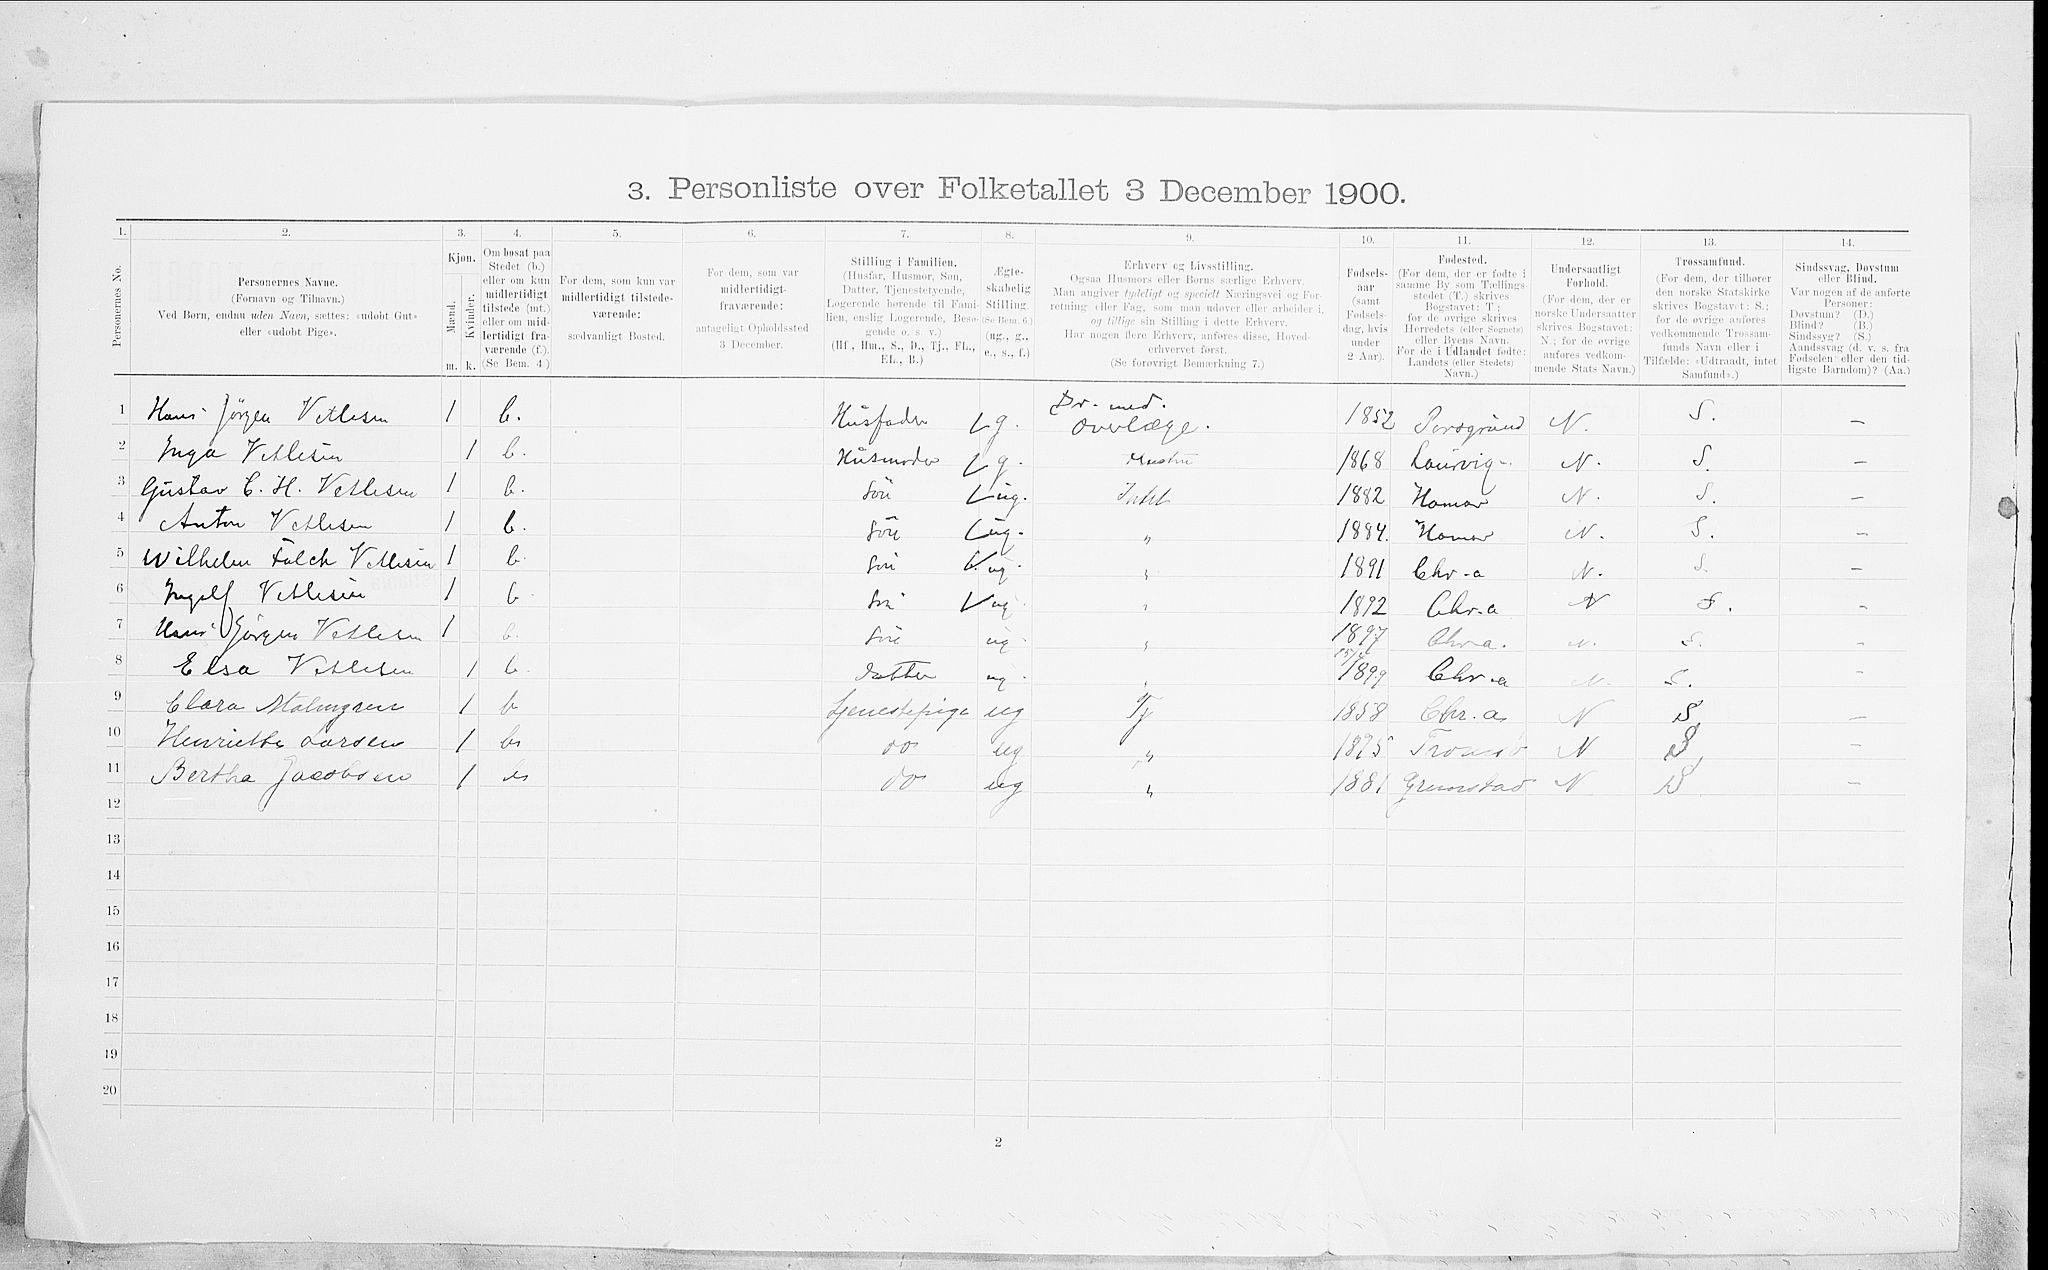 3. Personliste over Folketallet 3 December 1900.
1. 2. 3. 4. 5. 6. 7. 8. 9. 10. 11. 12. 13. 14.
Personernes No.
Personernes Navne.
(Fornavn og Tilnavn.)
Ved Børn, endnu uden Navn, sættes: «udøbt Gut»
eller «udøbt Pige».
Kjøn.
Mænd.
Kvinder.
m. k.
Om bosat paa
Stedet (b.)
eller om kun
midlertidigt
tilstede (mt.)
eller om mid-
lertidigt fra-
værende (f.)
(Se Bem. 4.)
For dem, som kun var
midlertidigt tilstede-
værende:
sædvanligt Bosted.
For dem, som var
midlertidigt-
fraværende:
antageligt Opholdssted
3 December.
Stilling i Familien.
(Husfar, Husmor, Søn,
Datter, Tjenestetyende,
Logerende hørende til Fami-
lien, enslig Logerende, Besø-
gende o. s. v.)
(Hf., Hm., S., D., Tj., FL.,
EL., B.)
Ægte-
skabelig
Stilling.
(Se Bem. 6.)
(ug., g.,
e., s., f.)
Erhverv og Livsstilling.
Ogsaa Husmors eller Børns særlige Erhverv.
Man angiver tydeligt og specielt Næringsvei og For-
retning eller Fag, som man udøver eller arbeider i,
og tillige sin Stilling i dette Erhverv.
Har nogen flere Erhverv, anføres disse, Hoved-
erhvervet først.
(Se forøvrigt Bemærkning 7.)
Fødsels-
aar
(samt
Fødsels-
dag, hvis
under
2 Aar).
Fødested.
(For dem, der er fødte i
samme By som Tællings-
stedet (T.) skrives
Bogstavet: T.;
for de øvrige skrives
Herredets (eller Sognets)
eller Byens Navn.
For de i Udlandet fødte:
Landets (eller Stedets)
Navn.)
Undersaatligt
Forhold.
(For dem, der er
norske Undersaatter
skrives Bogstavet:
N.; for de øvrige
anføres vedkom-
mende Stats Navn.)
Trossamfund.
(For dem, der tilhører
den norske Statskirke
skrives Bogstavet: S.;
for de øvrige anføres
vedkommende Trossam-
funds Navn eller i
Tilfælde: «Udtraadt, intet
Samfund».)
Sindssvag, Døvstum
eller Blind.
Var nogen af de anførte
Personer:
Døvstum? (D.)
Blind? (B.)
Sindssyg? (S.)
Aandssvag (d. v. s. fra
Fødselen eller den tid-
ligste Barndom)? (Aa.)
1 Hans Jörgen Vetlesen 1 b. Husfader g. Dr. med. Overlæge. 1852 Porsgrund N. S. –
2 Inga Vetlesen 1 b. Husmoder g. 1868 Laurvig N. S. –
3 Gustav C. H. Vetlesen 1 b. Sön ug. 1882 Hamar N. S. –
4 Anton Vetlesen 1 b. Sön ug. " 1884. Hamar N. S. –
5 Wilhelm Falck Vetlesen 1 b. Sön ug. " 1891 Chr.a N. S. –
6 Ingolf Vetlesen 1 b. Sön ug. " 1892 Chr.a N S. –
7 Hans Jörgen Vetlesen 1 b. Sön ug. " 1897 Chr.a. N. S. –
8 Elsa Vetlesen 1 b. Datter ug. " 1899 Chr.a N. S. –
9 Clara Malmgren 1 b Tjenestepige ug Tj 1858 Chr.a N S. –
10 Henriette Larsen 1 b do ug " 1875 Tromsö N S. –
11 Bertha Jacobsen 1 b do ug " 1881 Grimstad N S. –
12
13
14
15
16
17
18
19
20
2